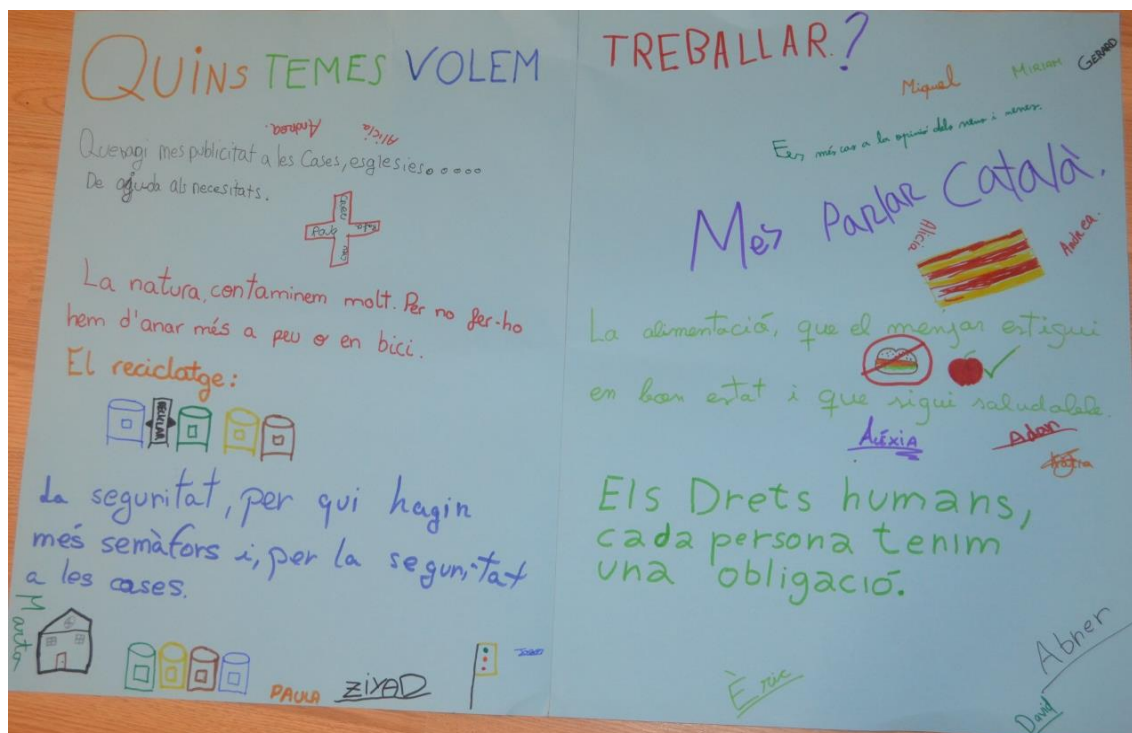 QUINS TEMES VOLEM TREBALLAR?
Andrea.
Alicia
Que vagi mes publicitat a les Cases, esglesies.....
De ajuda als necesitats.
Pau
La natura, contaminem molt. Per no fer-ho
hem d'anar més a peu o en bici.
El reciclatge:
RECICLAR
La seguritat, per qui hagin
més semàfors i, per la seguritat
a les cases.
Marta
PAULA
ZIYAD
Miquel
MIRIAM
GERARD
Fer més cas a la opinió dels nens i nenes.
Mes Parlar Català.
Alicia
Andrea.
La alimentació, que el menjar estigui
en bon estat i que sigui saludable.
ALÉXIA
Adan
Els Drets humans,
cada persona tenim
una obligació.
Èric
Abner
David